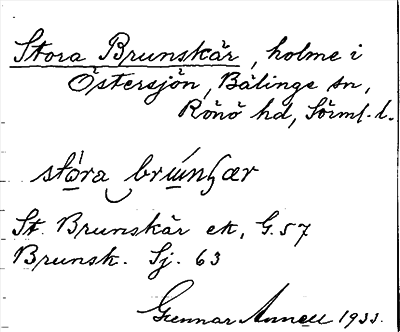 Stora Brunskär, holme i
Östersjön, Bälinge sn,
Rönö hd, Sörml. l.
stóra brúnʃær
St. Brunskär ek, G.57
Brunsk. Sj. 63
Gunnar Annell 1933.